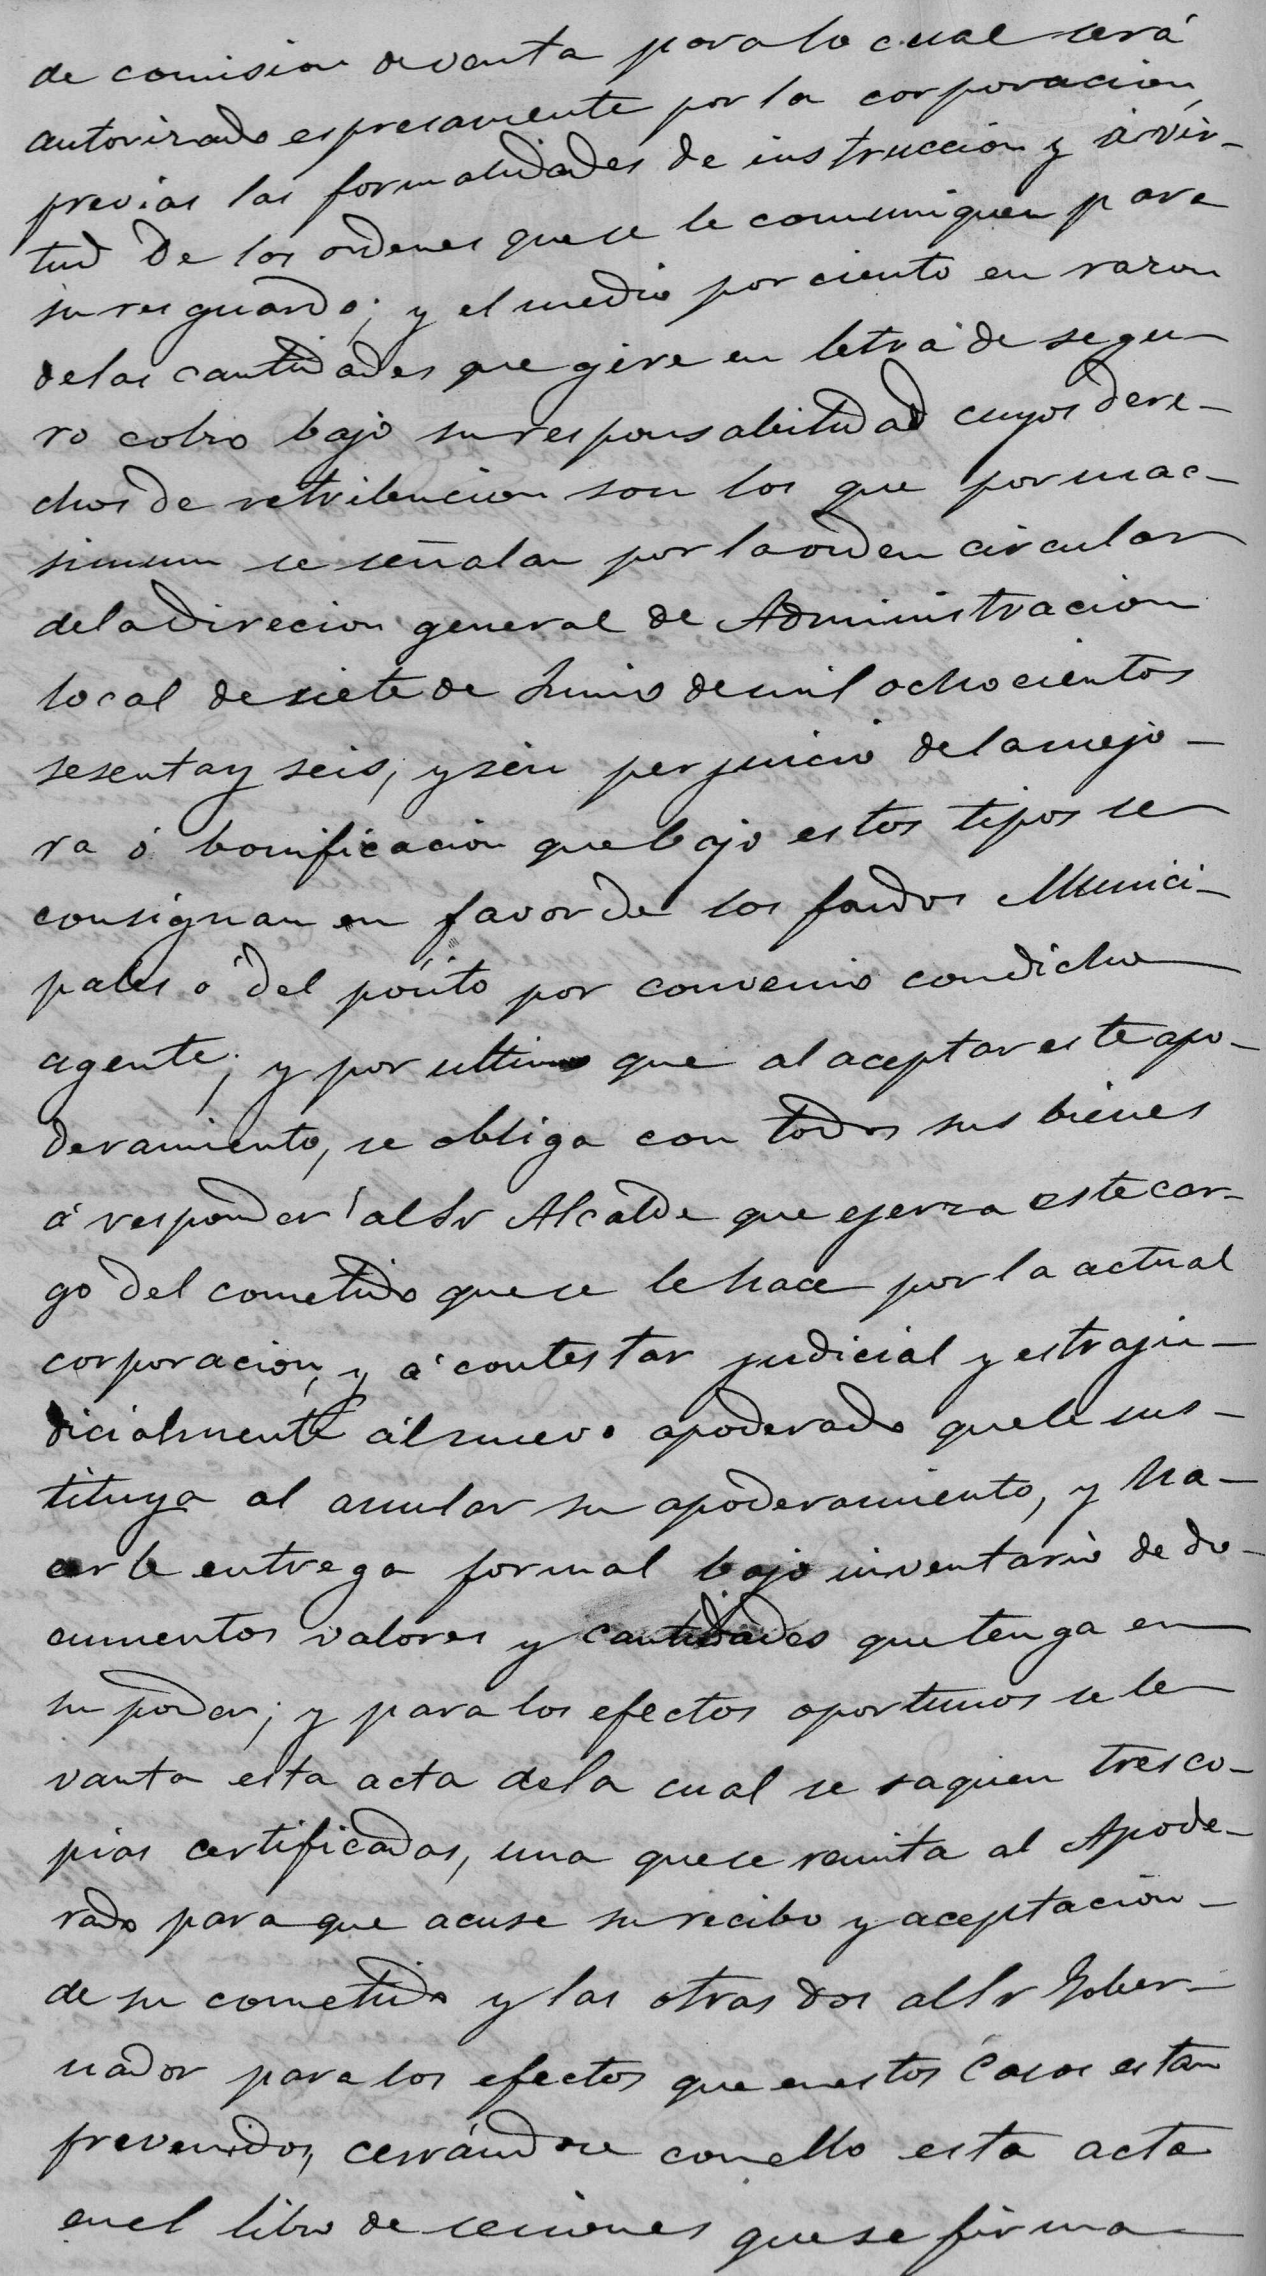 de comision de venta para lo cual será
autorizado espresamente por la corporacion,
previas las formalidades de instruccion y á vir-
tud de las ordenes que se le comuniquen para
su resguardo; y el medio por ciento en razon
de las cantidades que gire en letra de segu-
ro cobro bajo su responsabilidad cuyos dere-
chos de retribucion son los que por mac-
simum se señalan por la orden circular
de la Direcion general de Administracion
local de siete de Junio de mil ochocientos
sesenta y seis, y sin perjuicio de la mejo-
ra ó bonificacion que bajo estos tipos se
consignan en favor de los fondos Munici-
pales ó del pósito por convenio con dicho
agente; y por ultimo que al aceptar este apo-
deramiento, se obliga con todos sus bienes
á responder al Sr Alcalde que ejerza este car-
go del cometido que se le hace por la actual
corporacion, y á contestar judicial y estraju-
dicialmente al nuevo apoderado que le sus-
tituya al anular su apoderamiento, y ha-
cerle entrega formal bajo inventario de do-
cumentos valores y cantidades que tenga en
su poder; y para los efectos oportunos se le
vanta esta acta de la cual se saquen tres co-
pias certificadas, una que se remita al Apode-
rado para que acuse su recibo y aceptacion
de su cometido y las otras dos al Sr Gober-
nador para los efectos que en estos casos estan
prevenidos, cerrándose con ello esta acta
en el libro de seciones que se firma